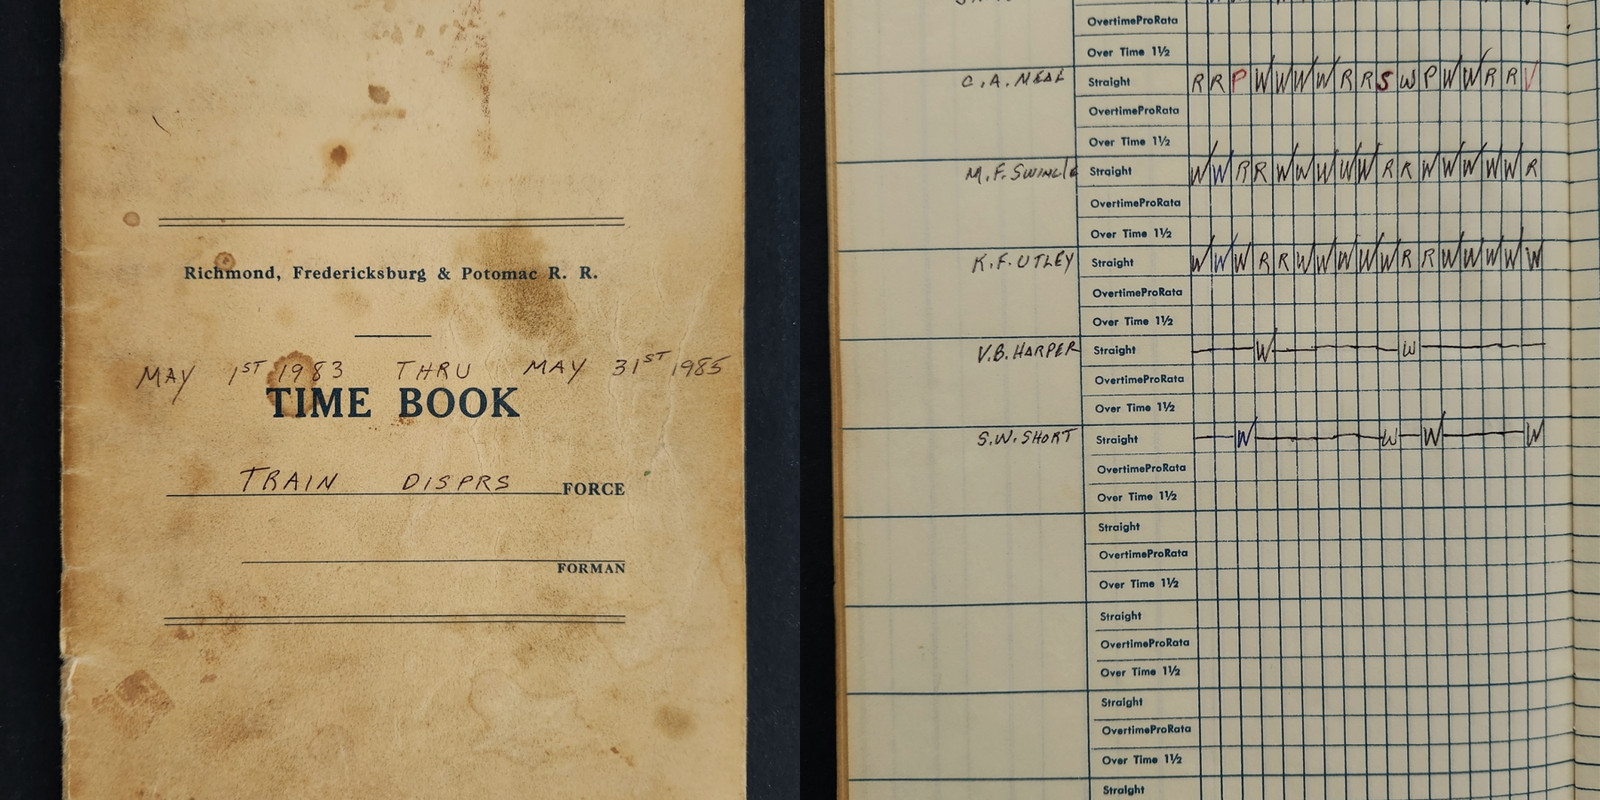 Richmond, Fredericksburg & Potomac R. R.
MAY 1ST 1983 THRU MAY 31ST 1985
TIME BOOK
TRAIN DISPRS FORCE
FORMAN
OvertimeProRata
Over Time 1½
C.A. NEAL Straight R R P W W W W R R S W P W W R R V
OvertimeProRata
Over Time 1½
M.F. SWINGLE Straight W W R R W W W W W R R W W W W W R
OvertimeProRata
Over Time 1½
K.F. UTLEY Straight W W W R R W W W W W R R W W W W W
OvertimeProRata
Over Time 1½
V.B. HARPER Straight W W
OvertimeProRata
Over Time 1½
S.W. SHORT Straight W W W W
OvertimeProRata
Over Time 1½
Straight
OvertimeProRata
Over Time 1½
Straight
OvertimeProRata
Over Time 1½
Straight
OvertimeProRata
Over Time 1½
Straight